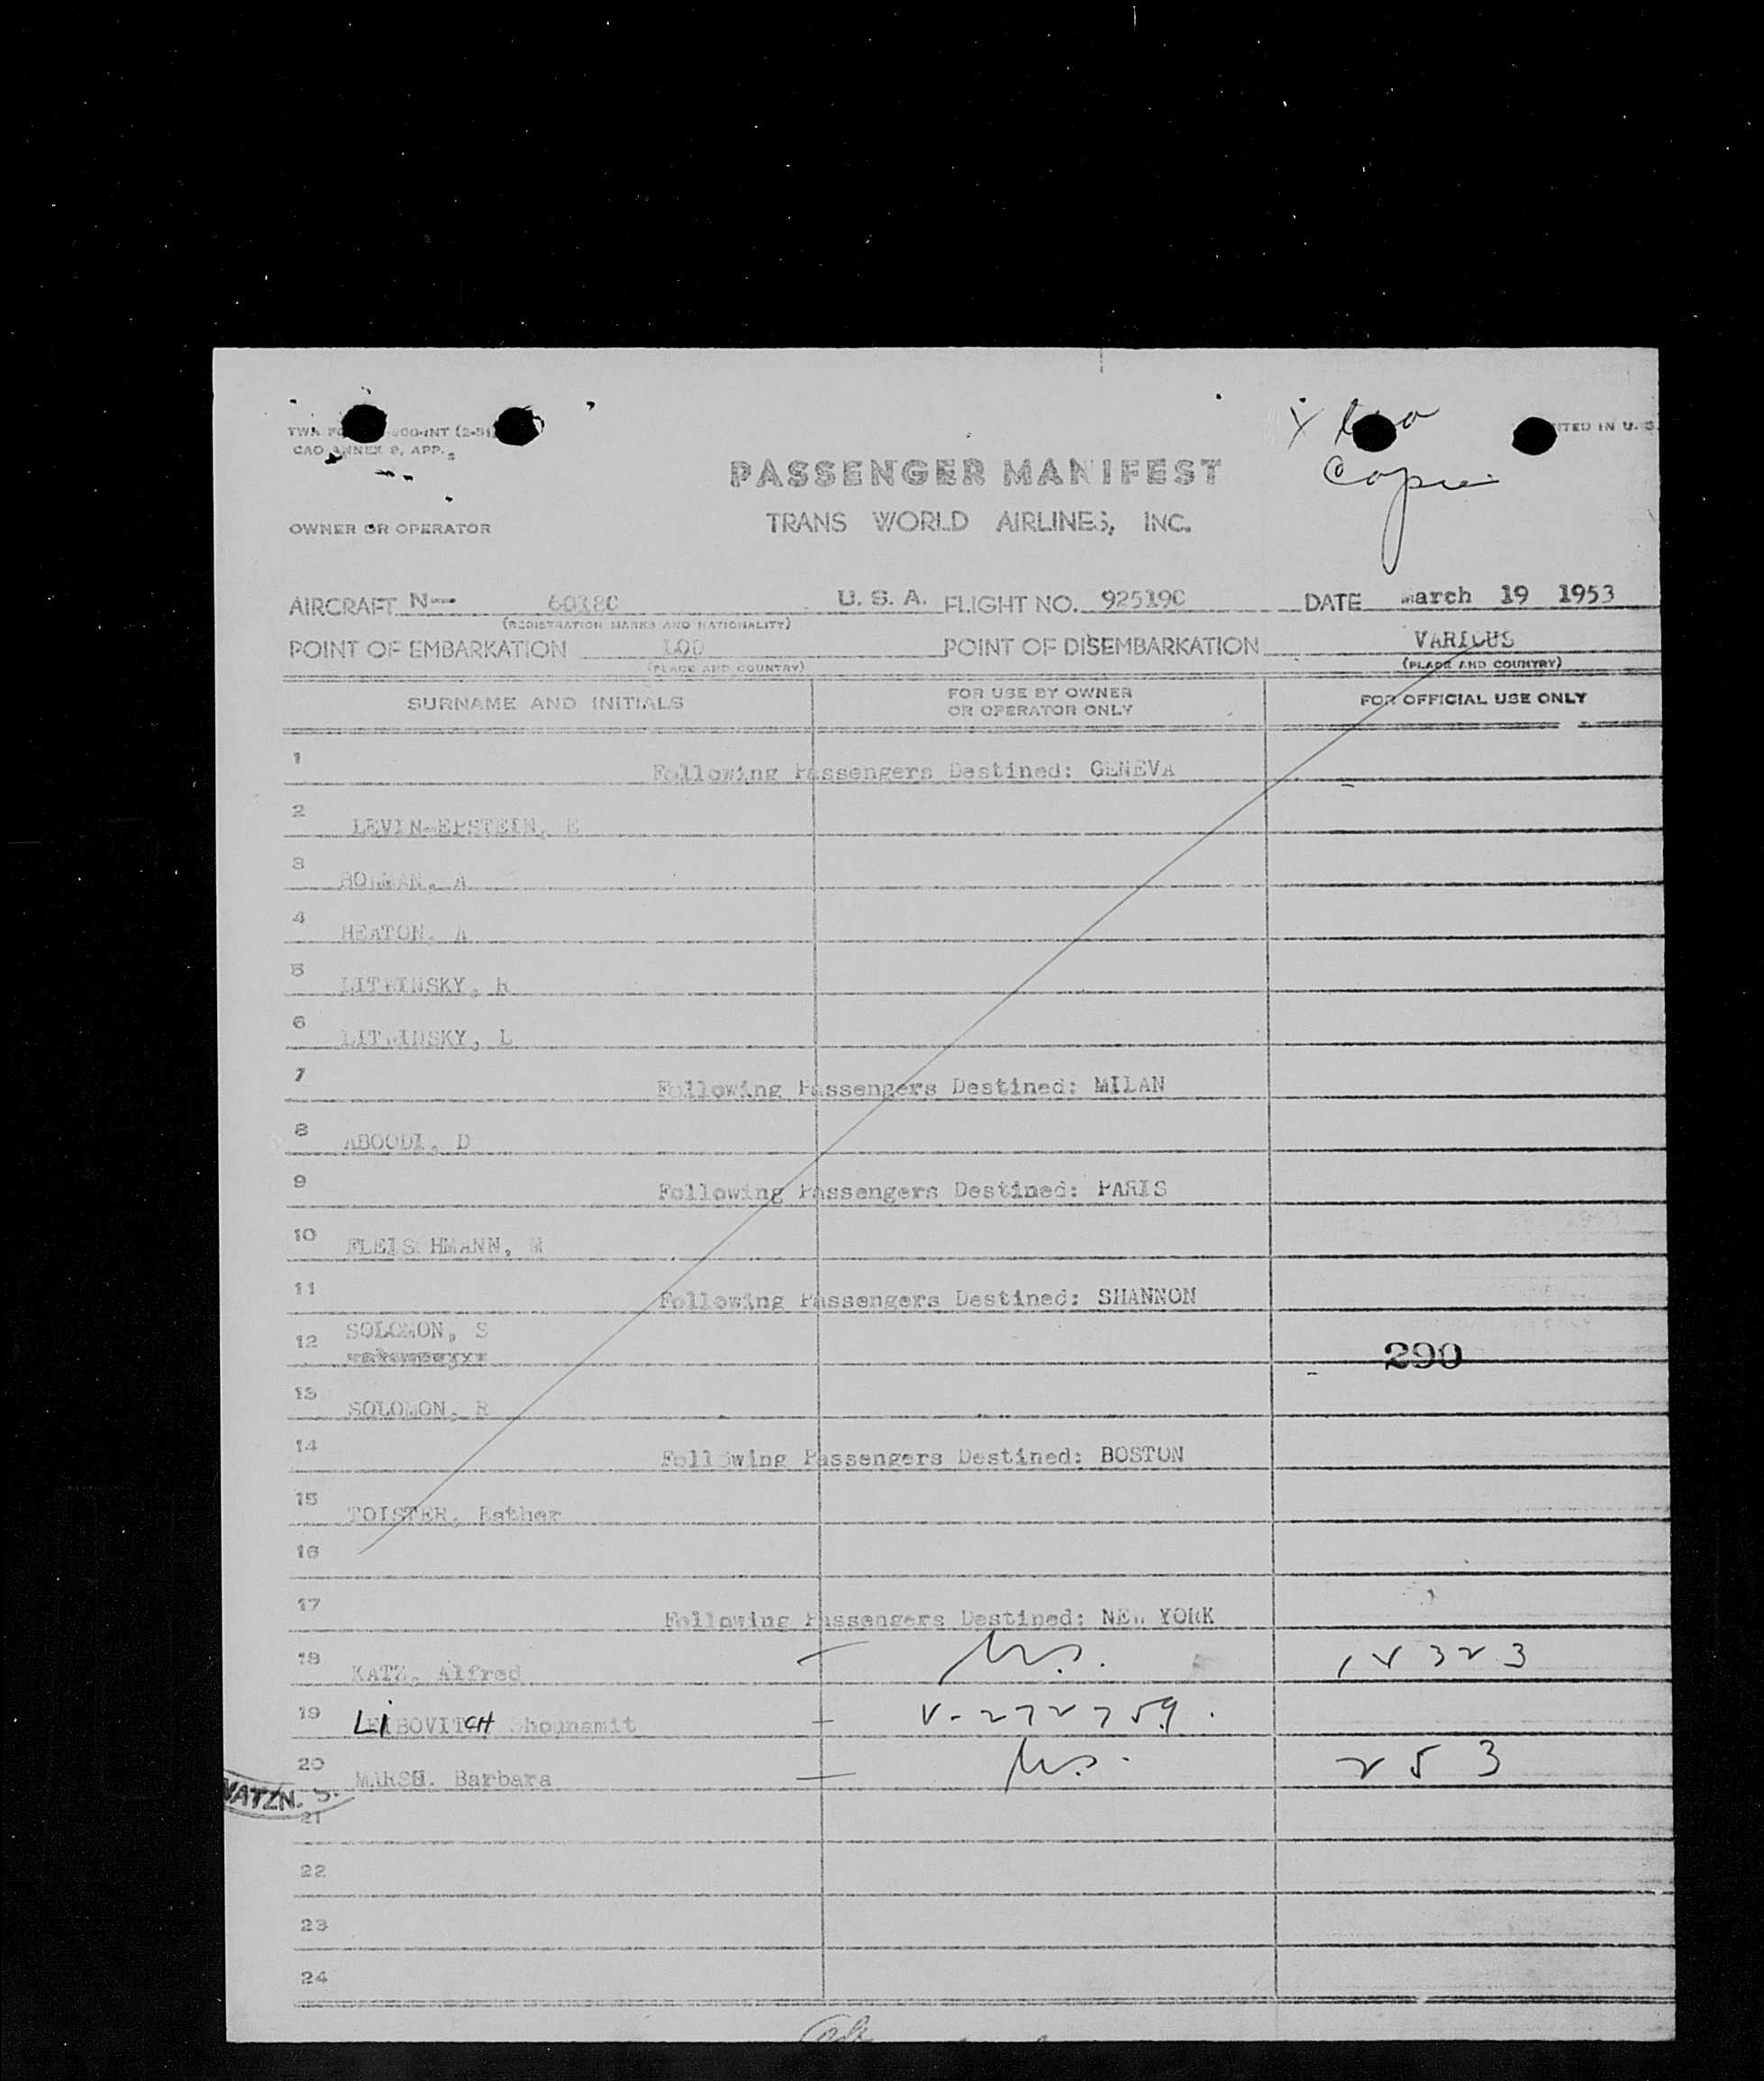 TWA -800-INT (2-51)
CAO ANNEX 9, APP.
PRINTED IN U. S.
Copie
PASSENGER MANIFEST
OWNER OR OPERATOR
TRANS WORLD AIRLINES, INC.
AIRCRAFT N-- 6018C U. S. A. FLIGHT NO. 92519C DATE March 19 1953
(REGISTRATION MARKS AND NATIONALITY)
POINT OF EMBARKATION LOD POINT OF DISEMBARKATION VARIOUS
(PLACE AND COUNTRY) (PLACE AND COUNTRY)
SURNAME AND INITIALS FOR USE BY OWNER OR OPERATOR ONLY FOR OFFICIAL USE ONLY
1 Following Passengers Destined: GENEVA
2 LEVIN-EPSTEIN, E
3 A
4 HEATON, A
5 LITWINSKY, R
6 LITWINSKY, L
7 Following Passengers Destined: MILAN
8 ABOODI, D
9 Following Passengers Destined: PARIS
10 FLEISCHMANN, M
11 Following Passengers Destined: SHANNON
12 SOLOMON, S
290
13 SOLOMON, R
14 Following Passengers Destined: BOSTON
15 TOISTER, Esther
16
17 Following Passengers Destined: NEW YORK
18 KATZ, Alfred — U.S. 14323
19 LIBOVITCH Shounamit — V-272759.
20 MARSH. Barbara — U.S. 253
NATZN. S.
21
22
23
24